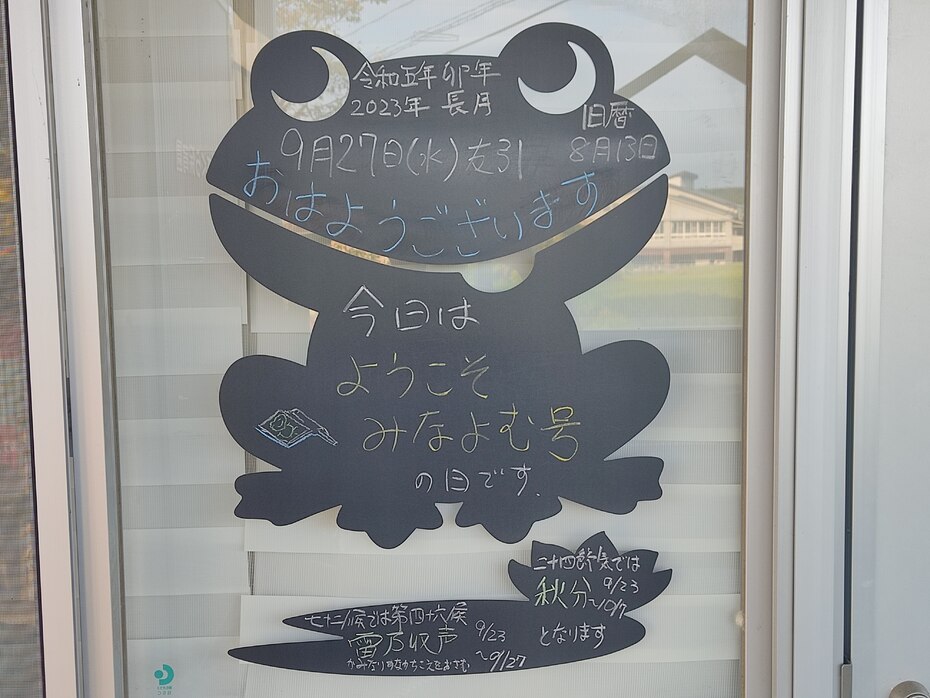 令和五年 卯年
2023年 長月
旧暦
8月13日
9月27日(水)友引
おはようございます
今日は
ようこそ
みなよむ号
の日です.
二十四節気では
秋分 9/23
~10/7
となります
七十二候では第四十六候
雷乃収声
9/23
~9/27
かみなりすなわちこえをおさむ